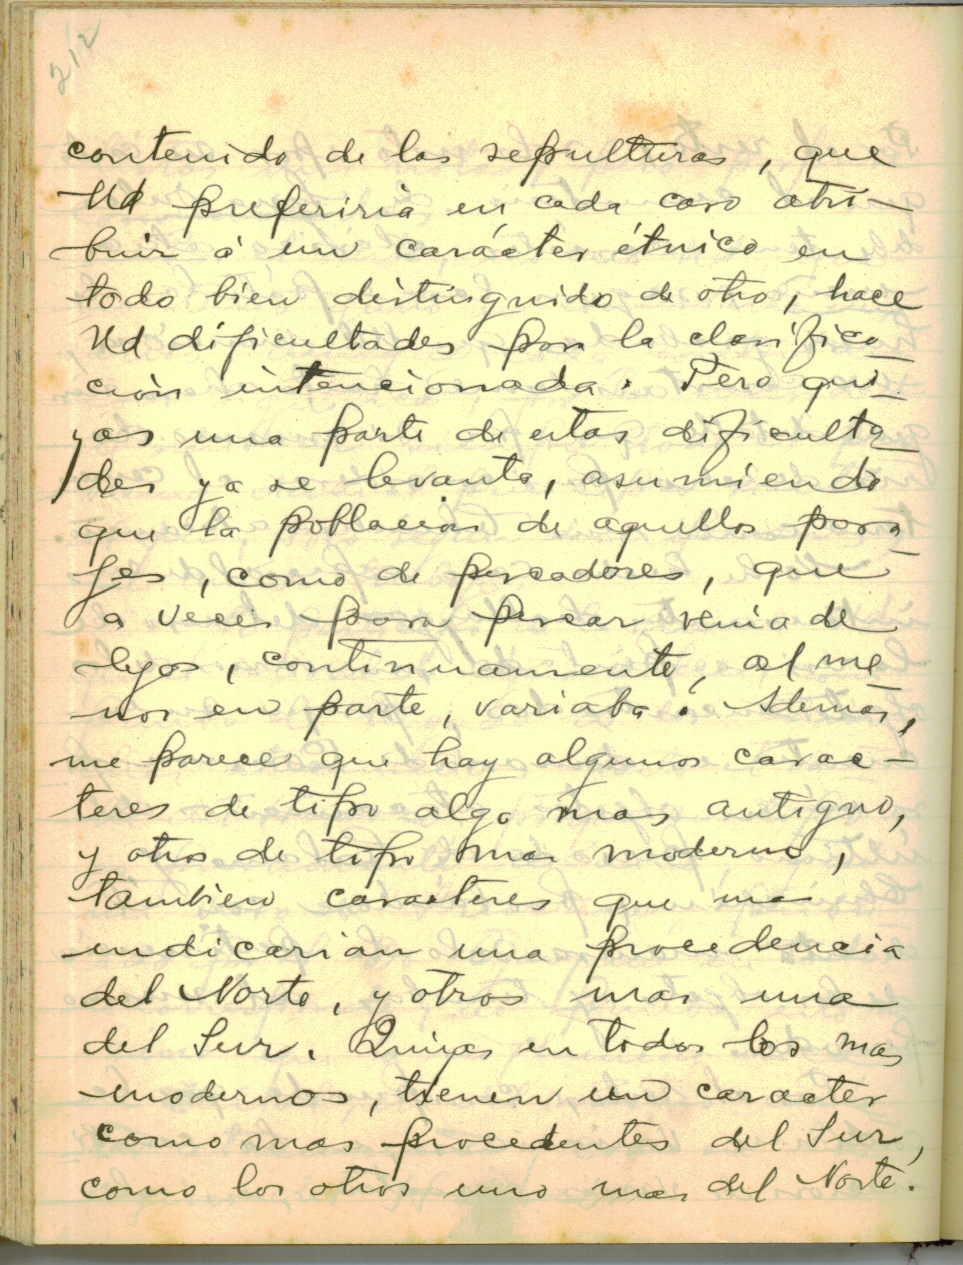 212
contenido de las sepulturas, que
Ud preferiria en cada caso atri-
buir á un carácter étnico en
todo bien distinguido de otro, hace
Ud dificultades por la clasifica
ción intencionada. Pero qui-
zas una parte de estas dificulta
des ya se levanta, asumiendo
que la poblacion de aquellos para-
jes, como de pescadores, que
a veces para pescar venia de
lejos, continuamente, al me
nos en parte, variaba. Ademas,
me parece que hay algunos carac-
teres de tipo algo mas antiguo,
y otros de tipo mas moderno,
tambien caracteres que me
indicarian una procedencia
del Norte, y otros mas una
del Sur. Quizas en todos los mas
modernos, tienen un caracter
como mas procedentes del Sur,
como los otros uno mas del Norte.